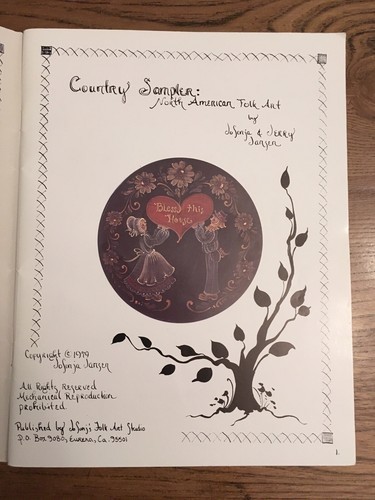 Country Sampler:
North American Folk Art
by
JoSonja & Jerry
Jansen
Bless this
House
Copyright © 1979
JoSonja Jansen
All Rights Reserved
Mechanical Reproduction
prohibited
Published by JoSonja Folk Art Studio
P.O. Box 9080, Eureka, Ca. 95501
1.